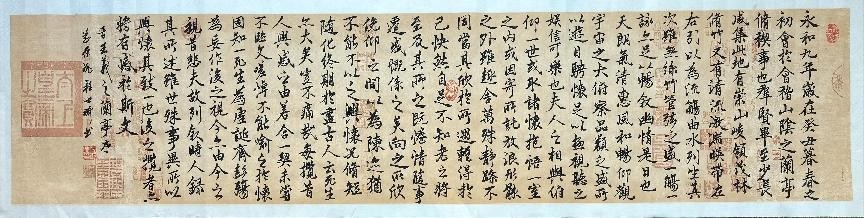 永和九年歲在癸丑暮春之
初會於會稽山陰之蘭亭
脩稧事也群賢畢至少長
咸集此地有崇山峻領茂林
脩竹又有清流激湍映帶左
右引以為流觴曲水列坐其
次雖無絲竹管弦之盛一觴一
詠亦足以暢敘幽情是日也
天朗氣清惠風和暢仰觀
宇宙之大俯察品類之盛所
以遊目騁懷足以極視聽之
娛信可樂也夫人之相與俯
仰一世或取諸懷抱悟言一室
之內或因寄所託放浪形骸
之外雖趣舍萬殊靜躁不
同當其欣於所遇暫得於
己怏然自足不知老之將
至及其所之既惓情隨事
遷感慨係之矣向之所欣
俛仰之間以為陳迹猶
不能不以之興懷況脩短
隨化終期於盡古人云死生
亦大矣豈不痛哉每攬昔
人興感之由若合一契未嘗
不臨文嗟悼不能喻之於懷
固知一死生為虛誕齊彭殤
為妄作後之視今亦由今之
視昔悲夫故列敘時人錄
其所述雖世殊事異所以
興懷其致一也後之攬者亦
將有感於斯文
晉王羲之蘭亭序